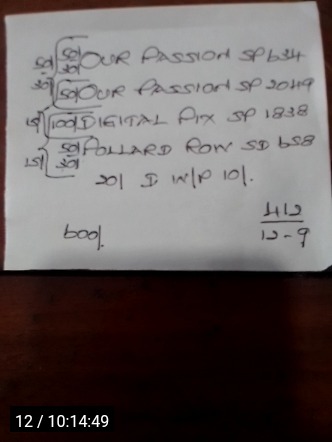 50/ 50/ 30/ OUR PASSION SP 634
30/ 50/ OUR PASSION SP 2049
15/ 100/ DIGITAL PIX SP 1838
15/ 50/ 30/ POLLARD ROW SD 658
20/ D W/P 10/.
600/.
412
12-9
12 / 10:14:49